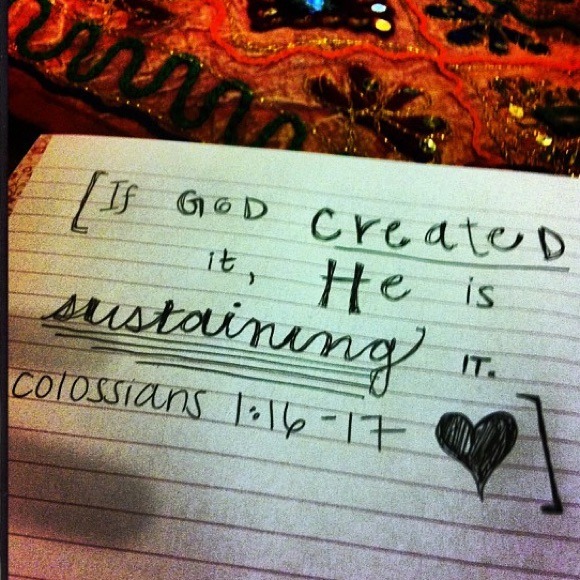 [If GOD createD
it, He is
sustaining IT.
colossians 1:16-17 ♥]